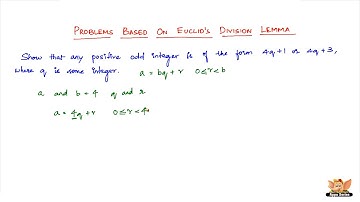 PROBLEMS BASED ON EUCLID'S DIVISION LEMMA
Show that any positive odd integer is of the form 4q+1 or 4q+3,
where q is some integer. a = bq + r 0≤r<b
a and b = 4 q and r
a = 4q + r 0≤r<4